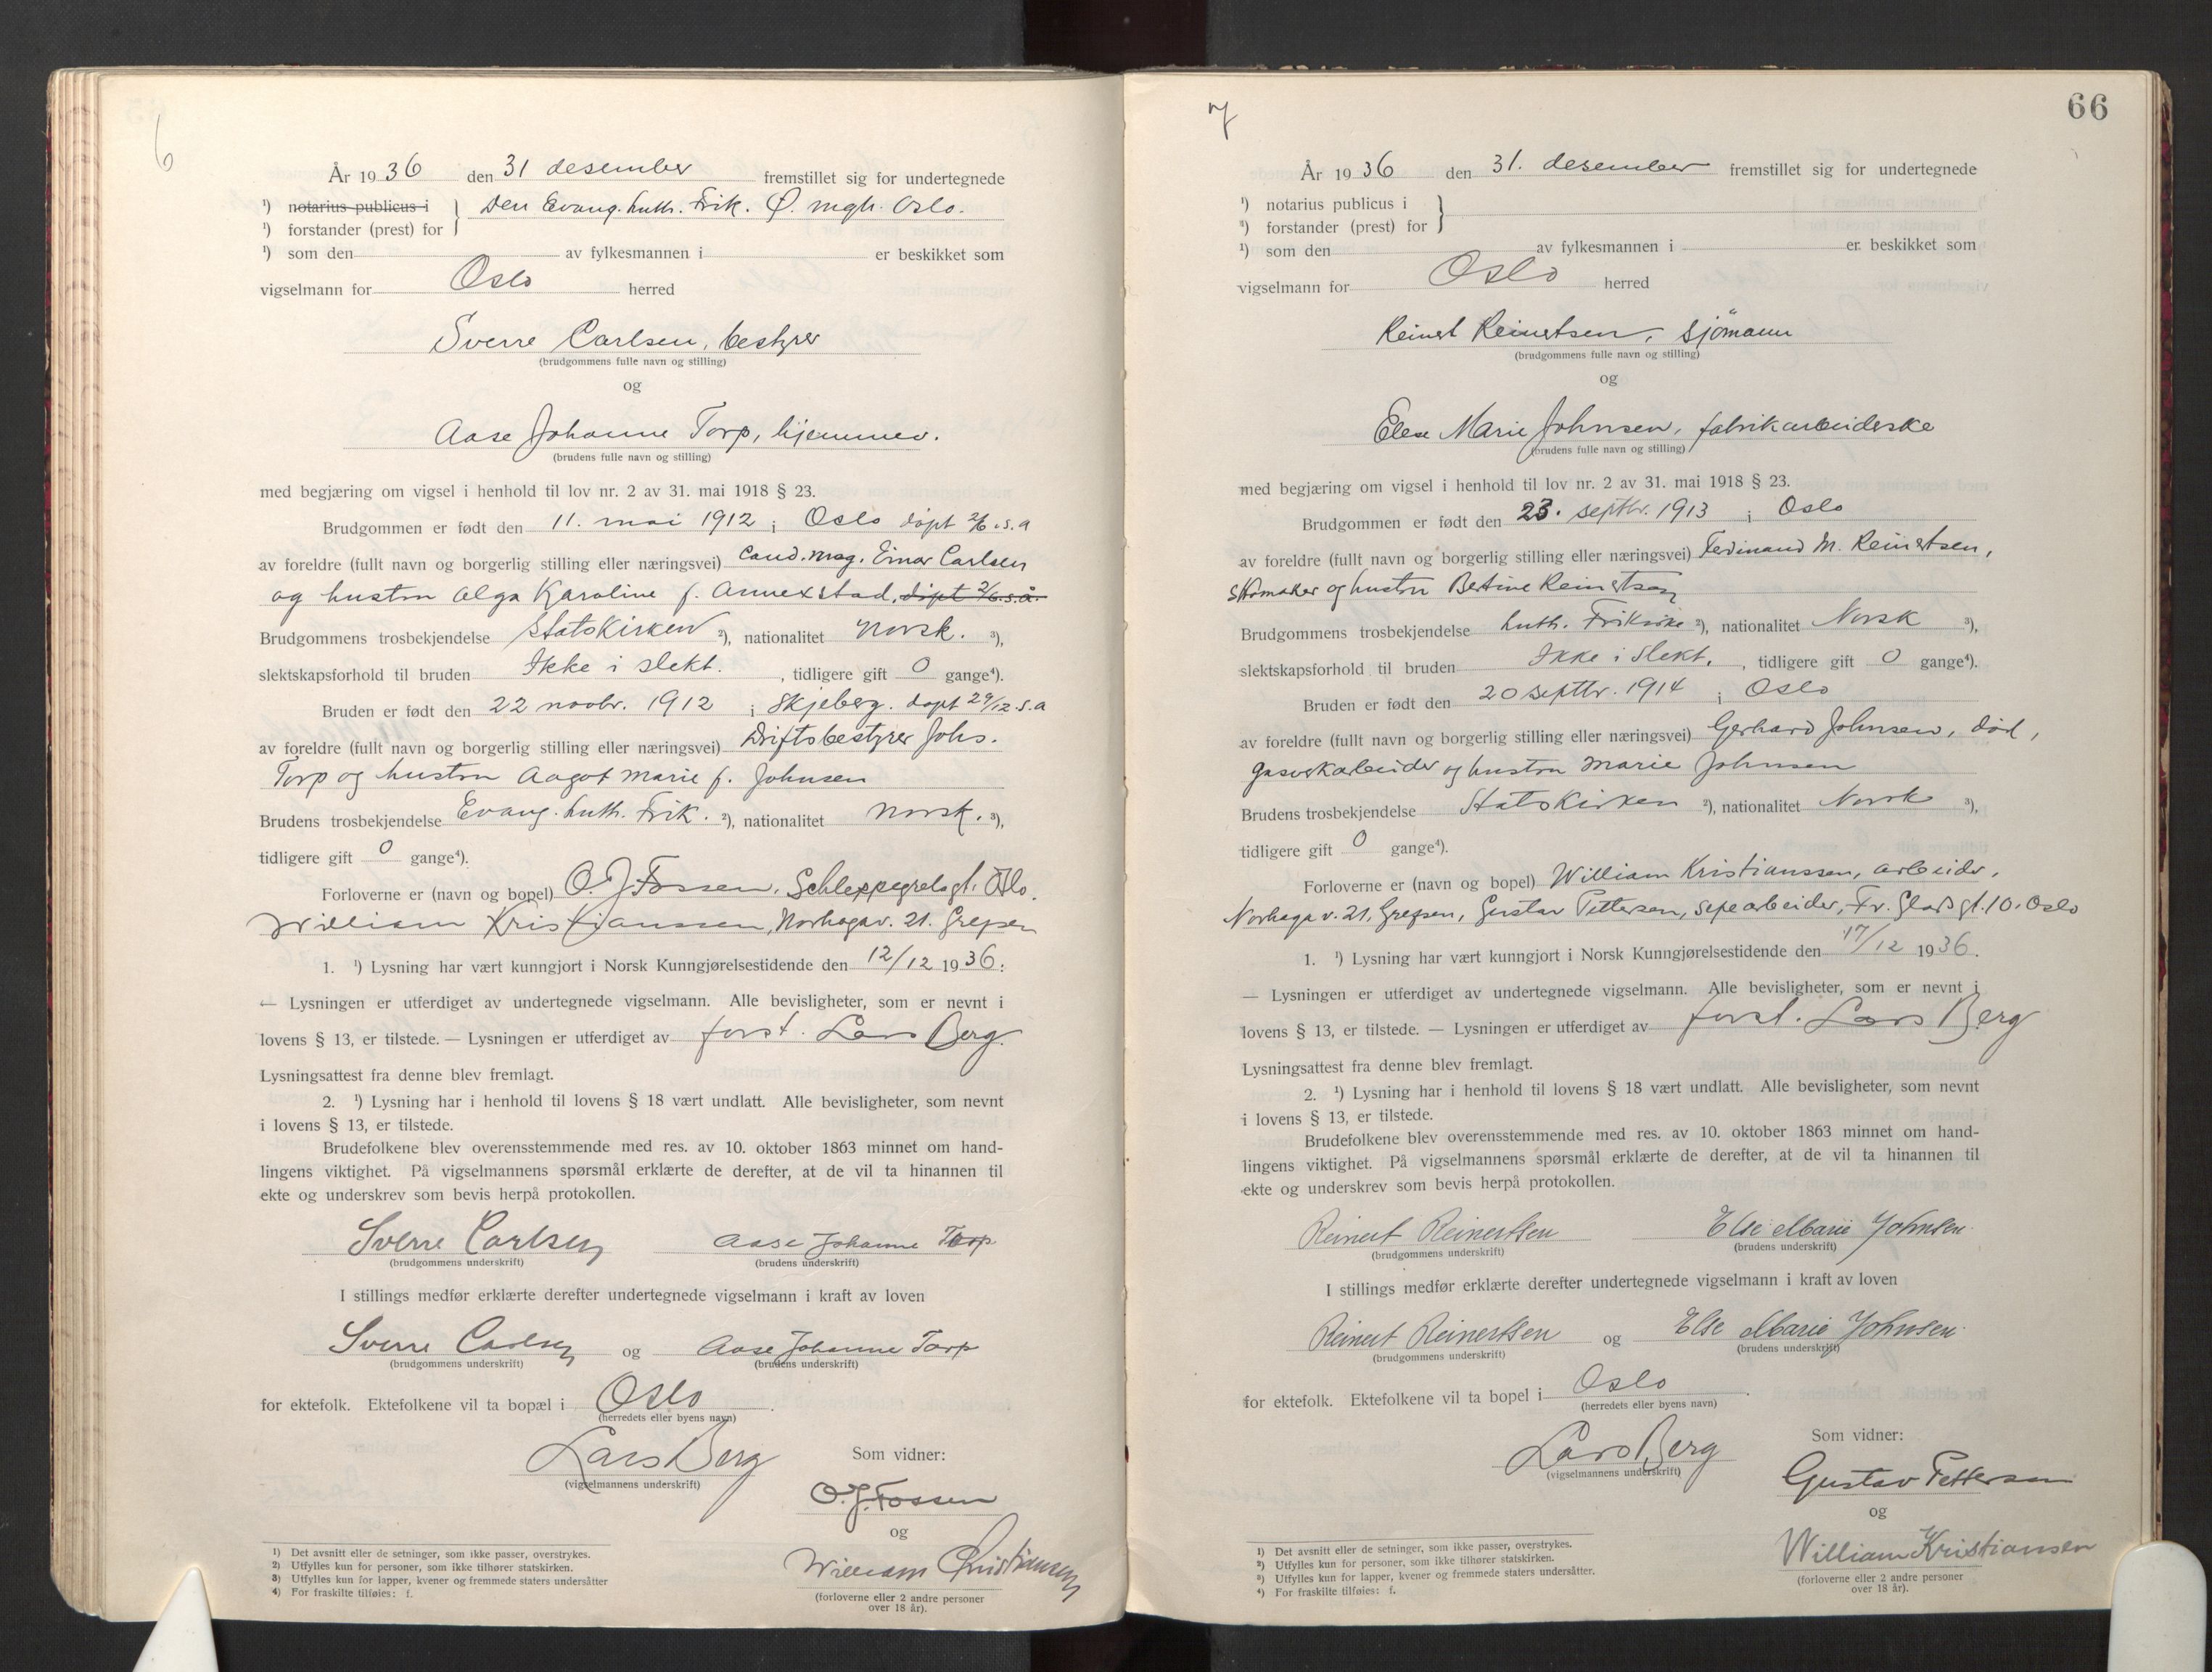 6
År 1936 den 31 desember fremstillet sig for undertegnede
¹) notarius publicus i } Den Evang. Luth. Frik. Ø. mgh. Oslo.
¹) forstander (prest) for
¹) som den av fylkesmannen i er beskikket som
vigselmann for Oslo herred
Sverre Carlsen, bestyrer
(brudgommens fulle navn og stilling)
og
Aase Johanne Torp, hjemmev.
(brudens fulle navn og stilling)
med begjæring om vigsel i henhold til lov nr. 2 av 31. mai 1918 § 23.
Brudgommen er født den 11. mai 1912 i Oslo døpt 2/6 s.a
av foreldre (fullt navn og borgerlig stilling eller næringsvei) Cand. mag. Einar Carlsen
og hustru Olga Karoline f. Annexstad, døpt 2/6 s.å.
Brudgommens trosbekjendelse Statskirken ²), nationalitet Norsk. ³),
slektskapsforhold til bruden Ikke i slekt. , tidligere gift 0 gange⁴).
Bruden er født den 22 novbr. 1912 i Skjeberg. døpt 29/12 s.a
av foreldre (fullt navn og borgerlig stilling eller næringsvei) Driftsbestyrer Johs.
Torp og hustru Aagot Marie f. Johnsen
Brudens trosbekjendelse Evang. Luth. Frik. ²), nationalitet Norsk. ³),
tidligere gift 0 gange⁴).
Forloverne er (navn og bopel) O. J. Fossen, Schleppegrelsgt. Oslo.
William Kristianssen, Norhagav. 21. Grefsen
1. ¹) Lysning har vært kunngjort i Norsk Kunngjørelsestidende den 12/12 1936.
— Lysningen er utferdiget av undertegnede vigselmann. Alle bevisligheter, som er nevnt i
lovens § 13, er tilstede. — Lysningen er utferdiget av forst. Lars Berg.
Lysningsattest fra denne blev fremlagt.
2. ¹) Lysning har i henhold til lovens § 18 vært undlatt. Alle bevisligheter, som nevnt
i lovens § 13, er tilstede.
Brudefolkene blev overensstemmende med res. av 10. oktober 1863 minnet om hand-
lingens viktighet. På vigselmannens spørsmål erklærte de derefter, at de vil ta hinannen til
ekte og underskrev som bevis herpå protokollen.
Sverre Carlsen Aase Johanne Torp.
(brudgommens underskrift) (brudens underskrift)
I stillings medfør erklærte derefter undertegnede vigselmann i kraft av loven
Sverre Carlsen og Aase Johanne Torp
(brudgommens underskrift) (brudens underskrift)
for ektefolk. Ektefolkene vil ta bopæl i Oslo.
(herredets eller byens navn)
Lars Berg
(vigselmannens underskrift)
Som vidner:
O. J. Fossen
og
William Christiansen
(forloverne eller 2 andre personer
over 18 år).
¹) Det avsnitt eller de setninger, som ikke passer, overstrykes.
²) Utfylles kun for personer, som ikke tilhører statskirken.
³) Utfylles kun for lapper, kvener og fremmede staters undersåtter
⁴) For fraskilte tilføies: f.
7
66
År 1936 den 31. desember fremstillet sig for undertegnede
¹) notarius publicus i }
¹) forstander (prest) for
¹) som den av fylkesmannen i er beskikket som
vigselmann for Oslo herred
Reinert Reinertsen, sjömann
(brudgommens fulle navn og stilling)
og
Else Marie Johnsen, fabrikarbeiderske
(brudens fulle navn og stilling)
med begjæring om vigsel i henhold til lov nr. 2 av 31. mai 1918 § 23.
Brudgommen er født den 23. septbr. 1913 i Oslo
av foreldre (fullt navn og borgerlig stilling eller næringsvei) Ferdinand M. Reinertsen,
skomaker og hustru Bertine Reinertsen
Brudgommens trosbekjendelse Luth. Frikirke ²), nationalitet Norsk ³),
slektskapsforhold til bruden Ikke i slekt. , tidligere gift 0 gange⁴).
Bruden er født den 20 septbr. 1914 i Oslo
av foreldre (fullt navn og borgerlig stilling eller næringsvei) Gerhard Johnsen, død,
gasverkarbeider og hustru Marie Johnsen
Brudens trosbekjendelse Statskirken ²), nationalitet Norsk ³),
tidligere gift 0 gange⁴).
Forloverne er (navn og bopel) William Kristianssen, arbeider,
Norhaga v. 21, Grefsen, Gustav Pettersen, sepearbeider, Fr. Gladsgt. 10. Oslo
1. ¹) Lysning har vært kunngjort i Norsk Kunngjørelsestidende den 17/12 1936.
— Lysningen er utferdiget av undertegnede vigselmann. Alle bevisligheter, som er nevnt i
lovens § 13, er tilstede. — Lysningen er utferdiget av forst. Lars Berg
Lysningsattest fra denne blev fremlagt.
2. ¹) Lysning har i henhold til lovens § 18 vært undlatt. Alle bevisligheter, som nevnt
i lovens § 13, er tilstede.
Brudefolkene blev overensstemmende med res. av 10. oktober 1863 minnet om hand-
lingens viktighet. På vigselmannens spørsmål erklærte de derefter, at de vil ta hinannen til
ekte og underskrev som bevis herpå protokollen.
Reinert Reinertsen Else Marie Johnsen.
(brudgommens underskrift) (brudens underskrift)
I stillings medfør erklærte derefter undertegnede vigselmann i kraft av loven
Reinert Reinertsen og Else Marie Johnsen.
(brudgommens underskrift) (brudens underskrift)
for ektefolk. Ektefolkene vil ta bopel i Oslo.
(herredets eller byens navn)
Lars Berg
(vigselmannens underskrift)
Som vidner:
Gustav Pettersen
og
William Kristiansen
(forloverne eller 2 andre personer
over 18 år).
¹) Det avsnitt eller de setninger, som ikke passer, overstrykes.
²) Utfylles kun for personer, som ikke tilhører statskirken.
³) Utfylles kun for lapper, kvener og fremmede staters undersåtter.
⁴) For fraskilte tilføies: f.